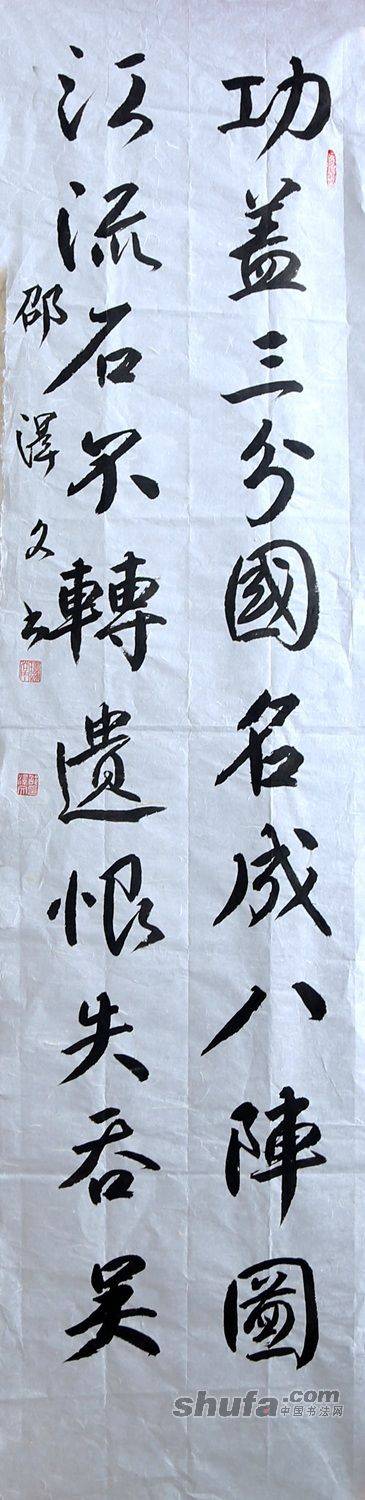 功盖三分國名成八陣圖
江流石不轉遺恨失吞吴
邵澤文书
shufa.com
中国书法网